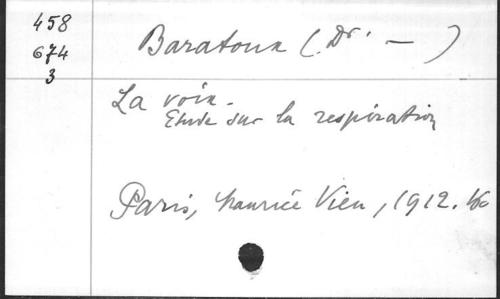 458
674
3
Baratoux (Dr. —)
La voix.
Etude sur la respiration
Paris, Maurice Vieu, 1912.